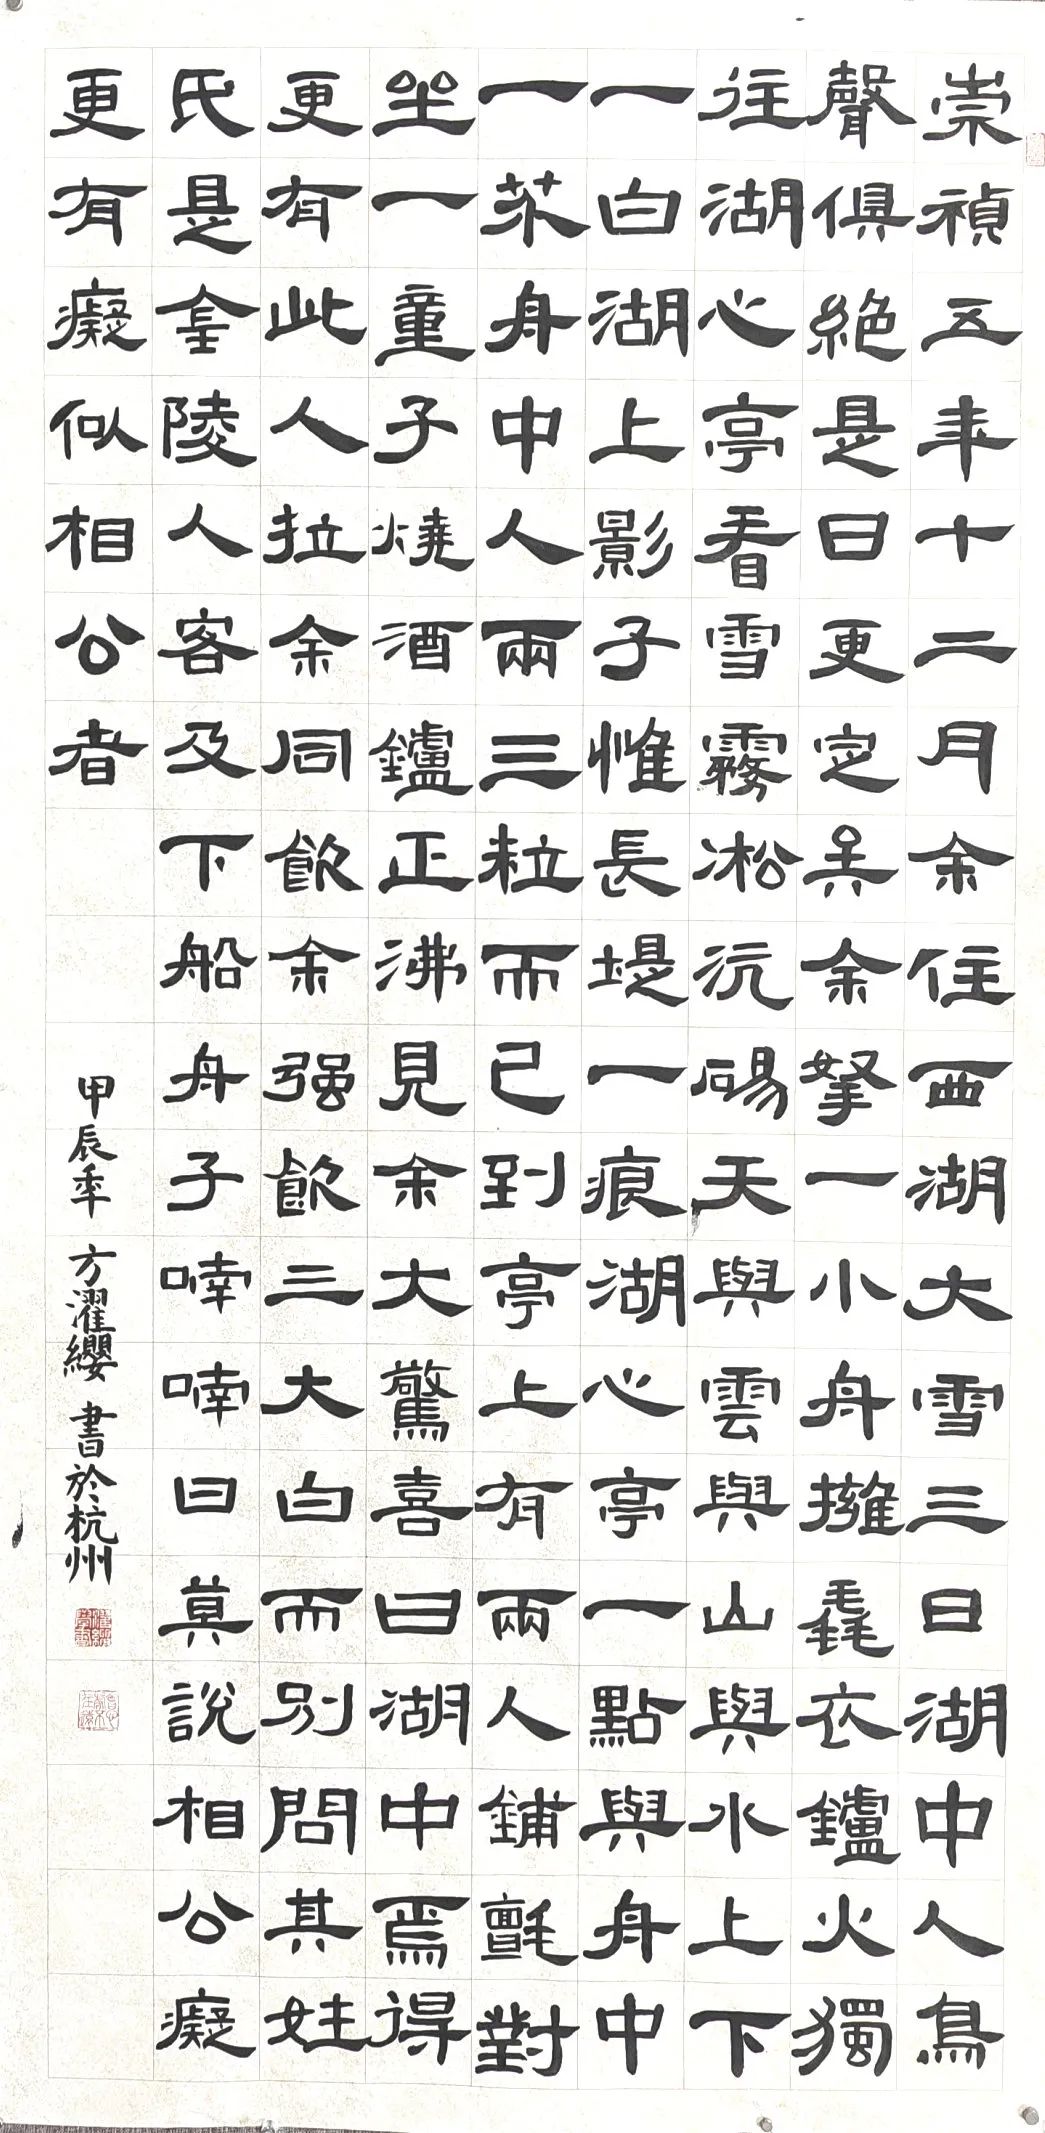 崇禎五年十二月余住西湖大雪三日湖中人鳥
聲俱絕是日更定矣余拏一小舟擁毳衣鑪火獨
往湖心亭看雪霧凇沆碭天與雲與山與水上下
一白湖上影子惟長堤一痕湖心亭一點與舟中
一芥舟中人兩三粒而已到亭上有兩人鋪氈對
坐一童子燒酒鑪正沸見余大驚喜曰湖中焉得
更有此人拉余同飲余强飲三大白而別問其姓
氏是金陵人客及下船舟子喃喃曰莫說相公癡
更有癡似相公者
甲辰年 方濯纓 書於杭州